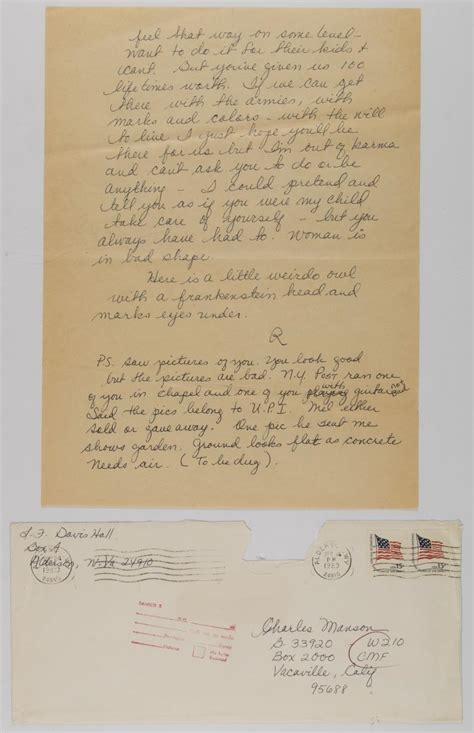 feel that way on some level -
want to do it for their kids &
cant. But youve given us 100
lifetimes worth. If we can get
there with the armies, with
marks and colors - with the will
to live I just hope youll be
there for us but I'm out of karma
and cant ask you to do or be
anything - I could pretend and
tell you as if you were my child
take care of yourself - but you
always have had to. Woman is
in bad shape.
Here is a little weirdo owl
with a frankenstein head and
marks eyes under.
R
PS. saw pictures of you. You look good
but the pictures are bad. N.Y. Post ran one
of you in chapel and one of you playing with guitar
Said the pics belong to U.P.I. Mel either
sold or gave away. One pic he sent me
shows garden. Ground looks flat as concrete
Needs air. (To be dug).
Davis Hall
Box A
Alderson, W. Va 24910
1983
ALDERSON
PM
1983
24910
15c
15c
Charles Manson
B 33920
W210
Box 2000
CMF
Vacaville, Calif
95688